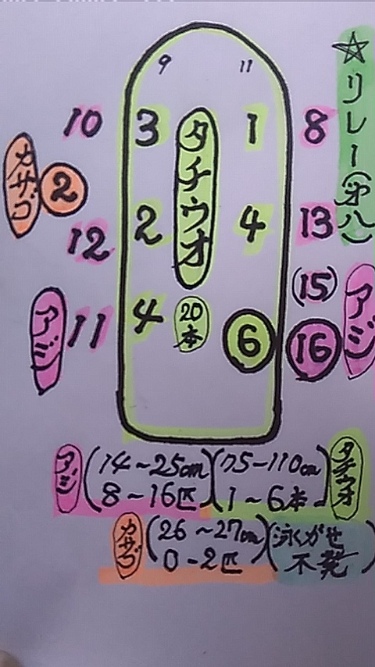 ☆リレー(第八)
9 11
10 3 タチウオ 1 8
カサゴ 2
12 2 4 13
(15)
アジ 11 4 20本 6 16 アジ
アジ (14~25cm 8~16匹) (75-110cm 1~6本) タチウオ
カサゴ (26~27cm 0-2匹) (泳がせ 不発)